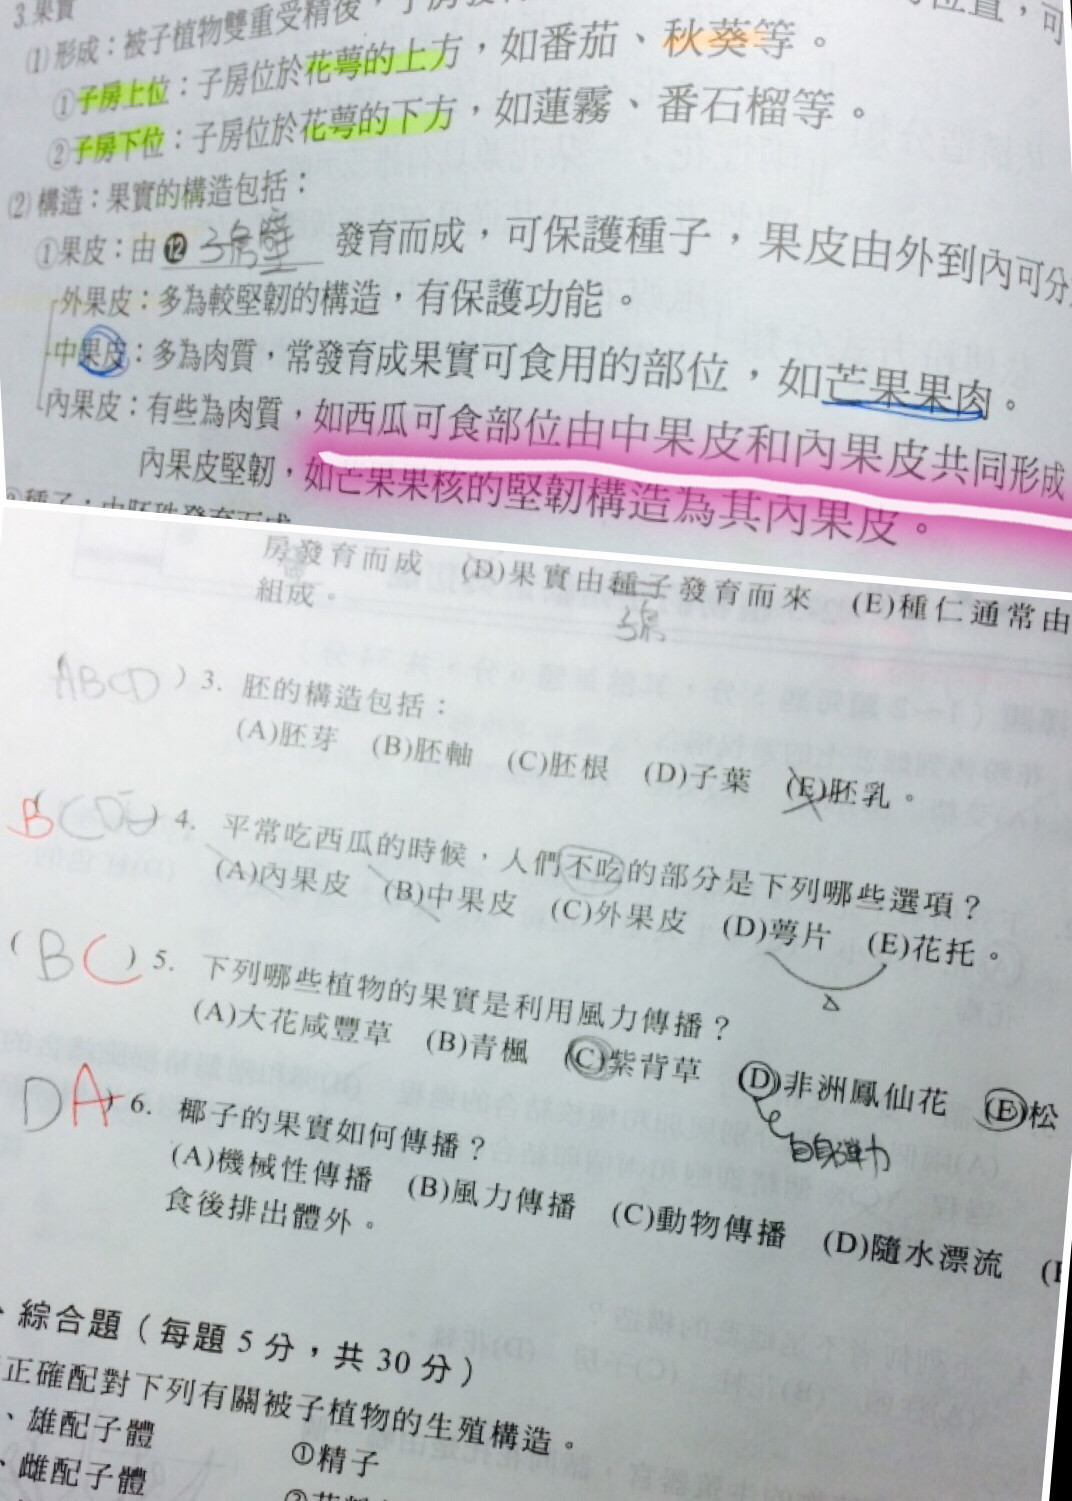 3.果實
(1)形成：被子植物雙重受精後，子房發
①子房上位：子房位於花萼的上方，如番茄、秋葵等。
②子房下位：子房位於花萼的下方，如蓮霧、番石榴等。
(2)構造：果實的構造包括：
①果皮：由⓬子房壁發育而成，可保護種子，果皮由外到內可分
外果皮：多為較堅韌的構造，有保護功能。
中果皮：多為肉質，常發育成果實可食用的部位，如芒果果肉。
內果皮：有些為肉質，如西瓜可食部位由中果皮和內果皮共同形成
內果皮堅韌，如芒果果核的堅韌構造為其內果皮。
種子：由胚珠發育而成
房發育而成 (D)果實由種子發育而來 (E)種仁通常由
子房
組成。
(ABCD) 3. 胚的構造包括：
(A)胚芽 (B)胚軸 (C)胚根 (D)子葉 (E)胚乳。
B(CDE) 4. 平常吃西瓜的時候，人們不吃的部分是下列哪些選項？
(A)內果皮 (B)中果皮 (C)外果皮 (D)萼片 (E)花托。
(BC) 5. 下列哪些植物的果實是利用風力傳播？
(A)大花咸豐草 (B)青楓 (C)紫背草 (D)非洲鳳仙花 (E)松
自身彈力
DA) 6. 椰子的果實如何傳播？
(A)機械性傳播 (B)風力傳播 (C)動物傳播 (D)隨水漂流
食後排出體外。
、綜合題（每題5分，共30分）
正確配對下列有關被子植物的生殖構造。
、雄配子體 ①精子
、雌配子體